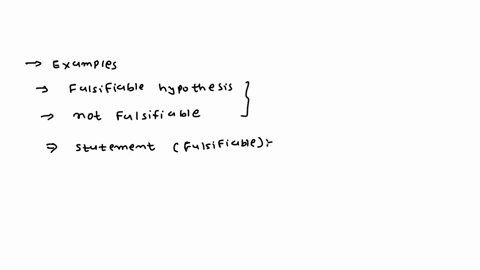 → Examples
→ Falsifiable hypothesis
→ not Falsifiable
⇒ statement (Falsifiable):-